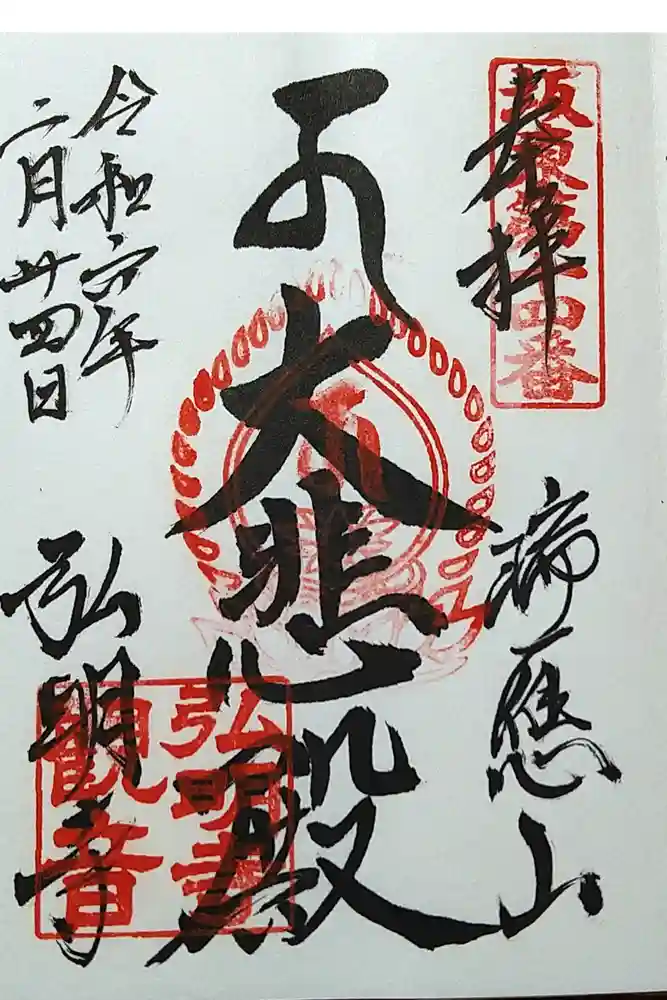 奉拝
坂東第十四番
瑞應山
大悲殿
弘明寺
観音
弘明寺
令和六年
二月廿四日